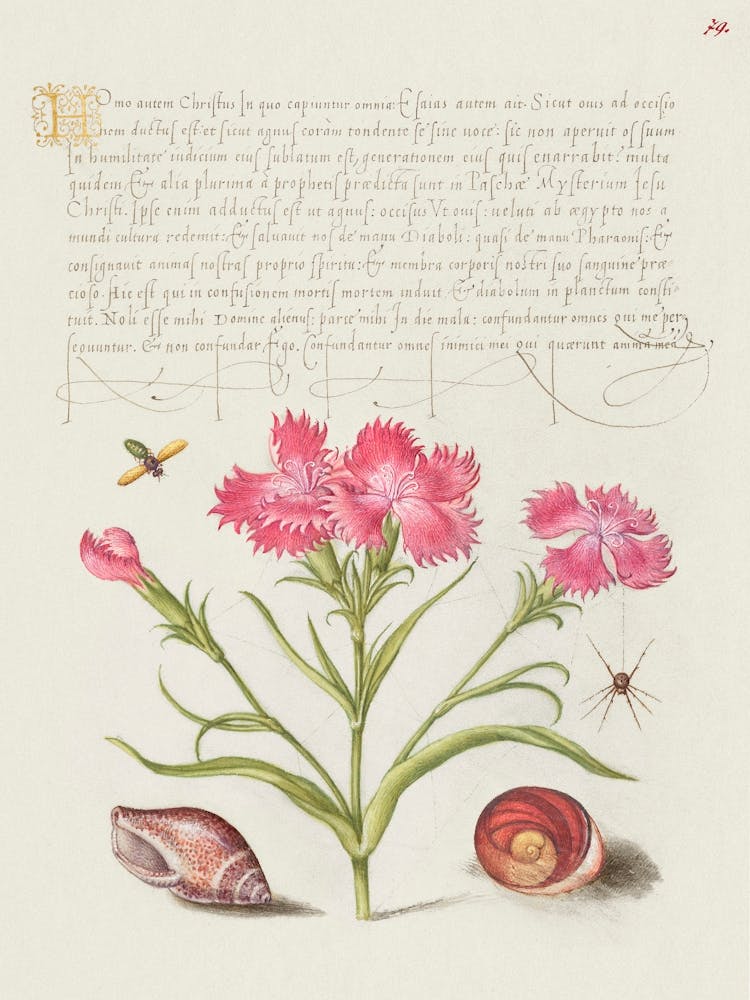 79.
Homo autem Christus In quo capiuntur omnia: Esaias autem ait. Sicut ouis ad occisio
nem ductus est et sicut agnus coràm tondente se sine voce: sic non aperuit os suum.
In humilitate iudicium eius sublatum est, generationem eius quis enarrabit? multa
quidem, Et alia plurima à prophetis prædicta sunt in Paschæ Mysterium Jesu
Christi. Ipse enim adductus est ut agnus: occisus Ut ouis: veluti ab ægypto nos a
mundi cultura redemit: Et saluauit nos de manu Diaboli: quasi de manu Pharaonis: Et
consignauit animas nostras proprio spiritu: Et membra corporis nostri suo sanguine præ
cioso. Hic est qui in confusionem mortis mortem induit, Et diabolum in planctum consti
tuit. Noli esse mihi Domine alienus: parce mihi In die mala: confundantur omnes qui me per
sequuntur. Et non confundar Ego. Confundantur omnes inimici mei qui quærunt animā meā.